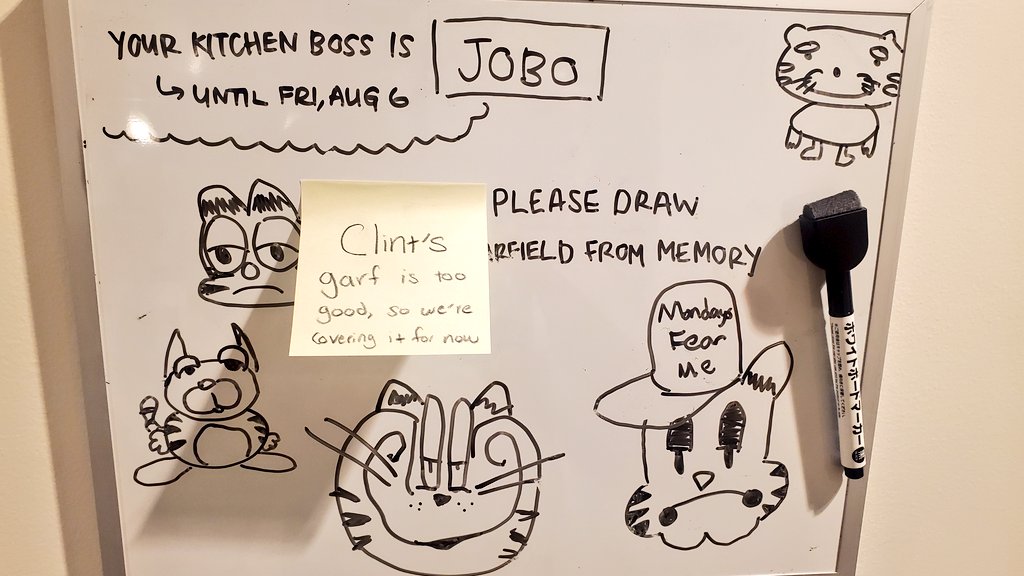 YOUR KITCHEN BOSS IS JOBO
↳ UNTIL FRI, AUG 6
PLEASE DRAW
ARFIELD FROM MEMORY
Clint's
garf is too
good, so we're
covering it for now
Mondays
Fear
Me
ホワイトボードマーカー